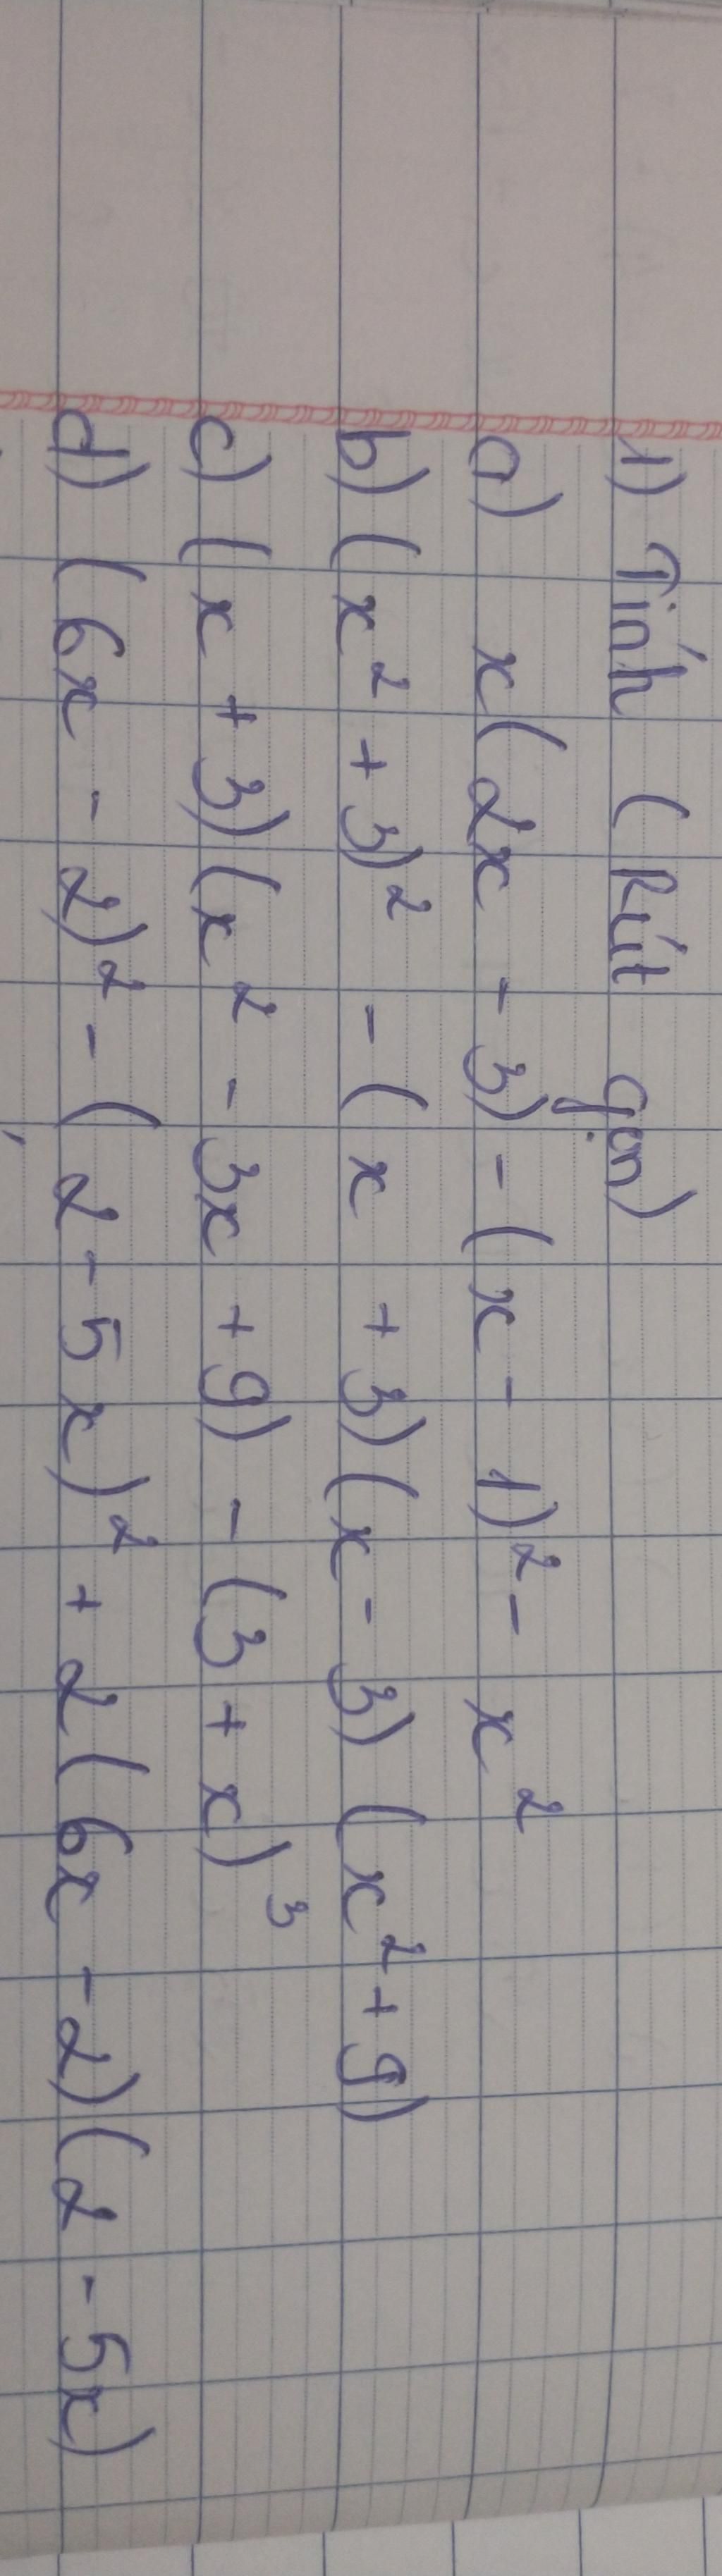 1) Tính (Rút gọn)
a) x(2x - 3) - (x - 1)² - x²
b) (x² + 3)² - (x + 3)(x - 3)(x² + 9)
c) (x + 3)(x² - 3x + 9) - (3 + x)³
d) (6x - 2)² - (2 - 5x)² + 2(6x - 2)(2 - 5x)